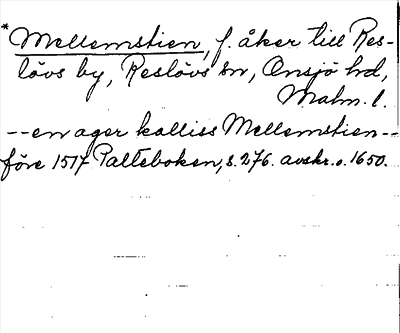 * Mellemstien, f. åker till Res-
lövs by, Reslövs sn, Onsjö hd,
Malm. l.
-- en ager kalliss Mellemstien --
före 1517 Palteboken, s. 276. avskr. o. 1650.